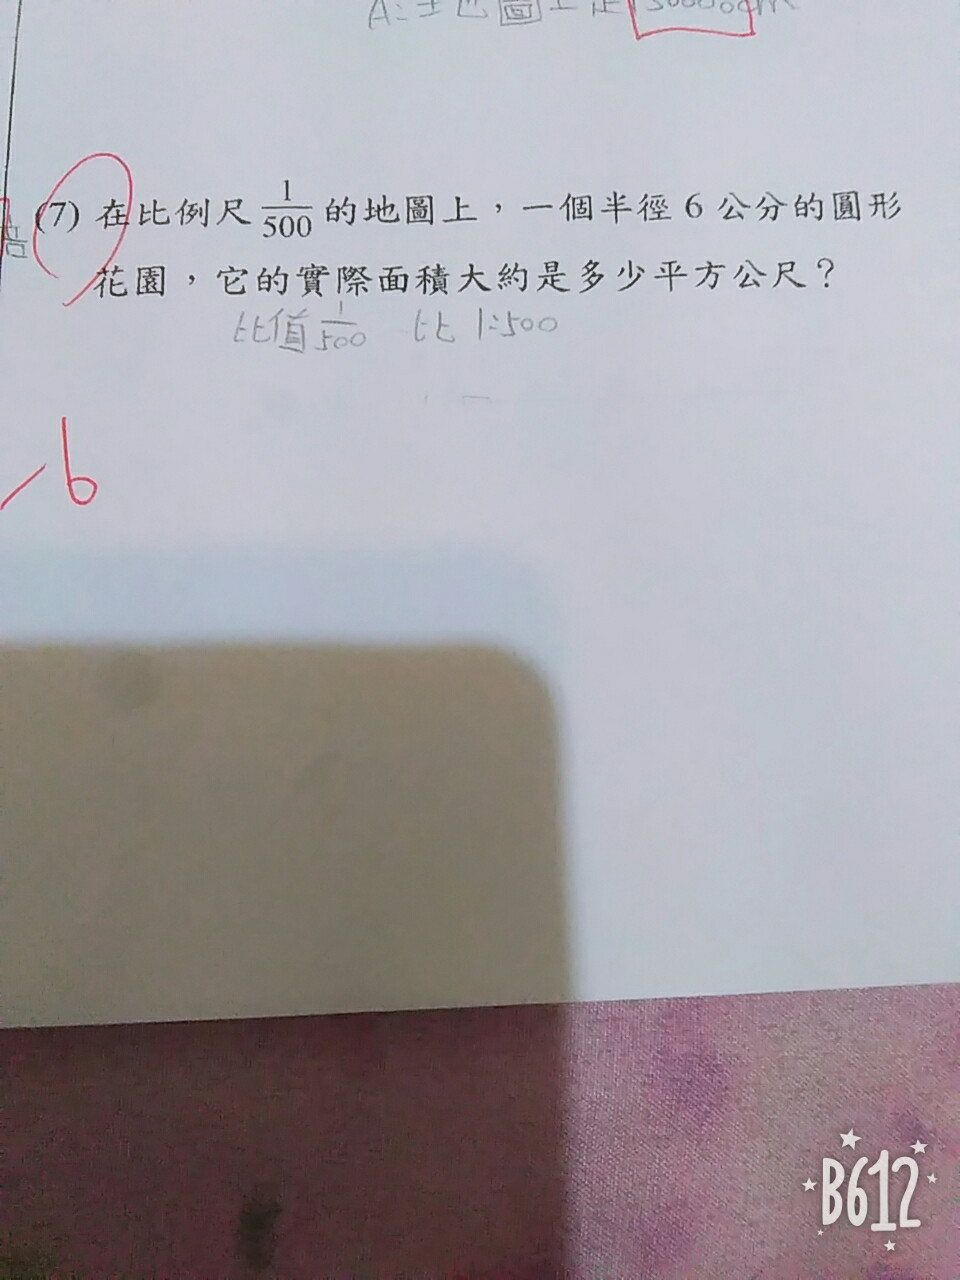 (7) 在比例尺 1/500 的地圖上，一個半徑 6 公分的圓形
花園，它的實際面積大約是多少平方公尺？
比值 1/500 比 1:500
-6
B612